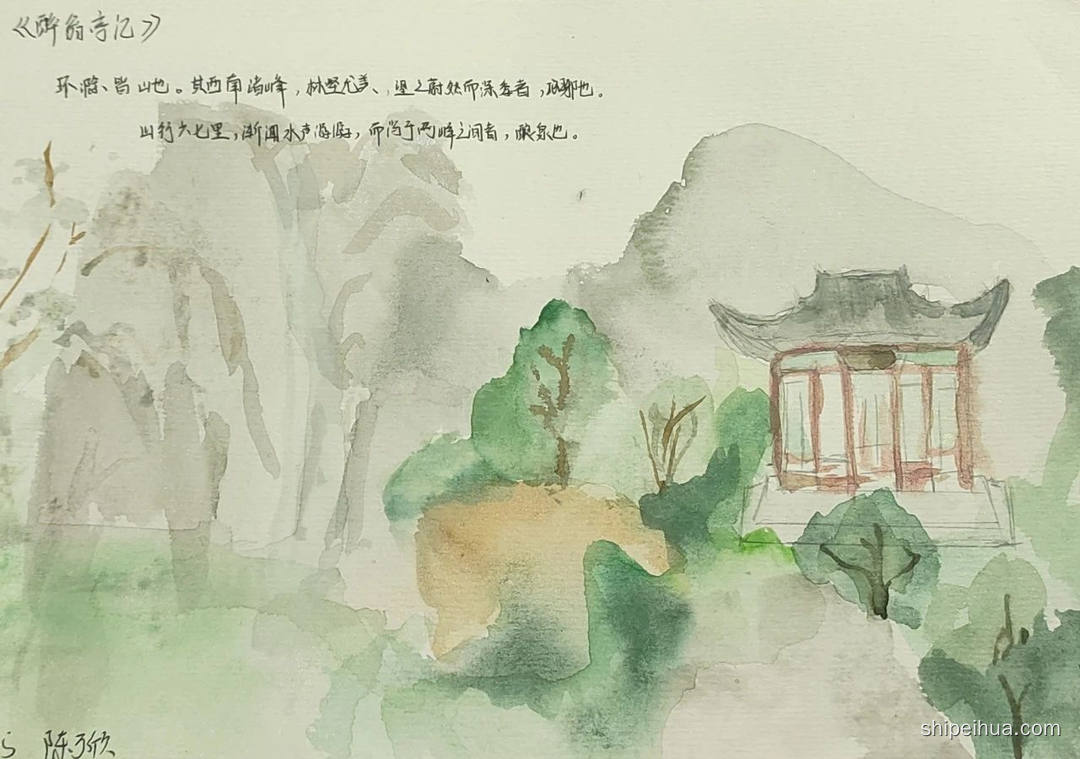 《醉翁亭记》
环滁皆山也。其西南诸峰,林壑尤美、望之蔚然而深秀者,琅琊也。
山行六七里,渐闻水声潺潺,而泻于两峰之间者,酿泉也。
陈子欣
shipeihua.com